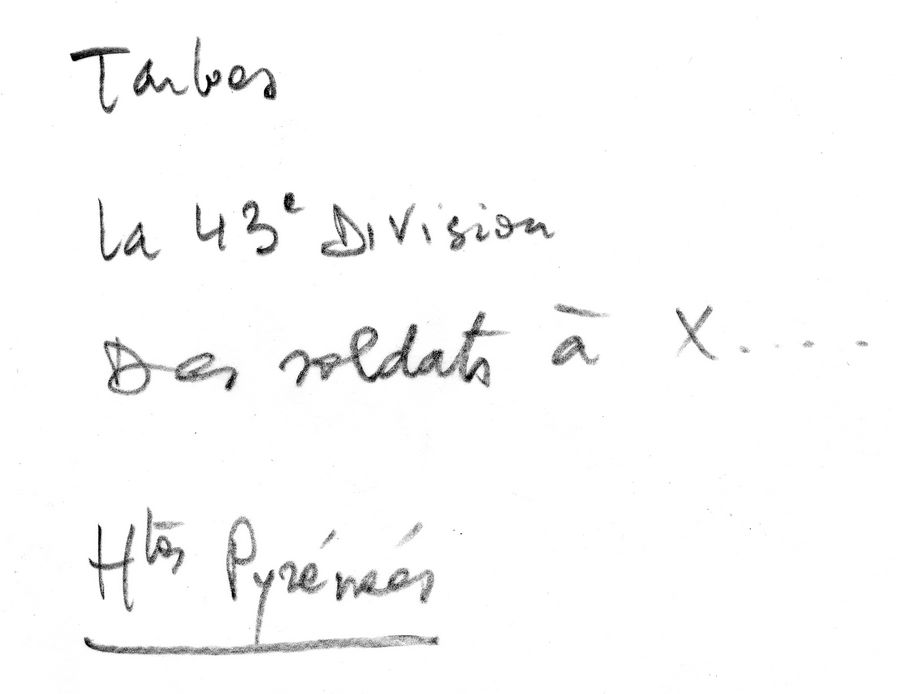 Tarbes
la 43e Division
Des soldats à X.....
Htes Pyrénées